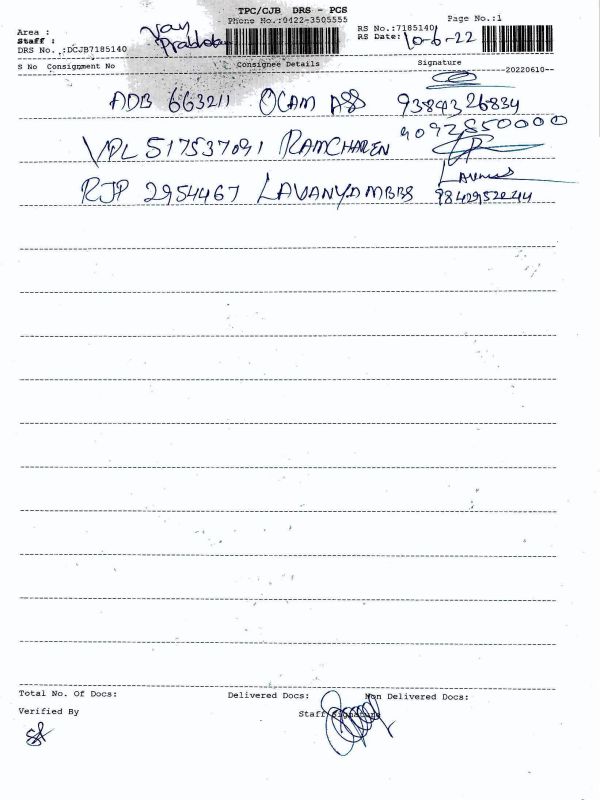 TPC/CJB DRS - PCS
Phone No.:0422-3505555
Page No.:1
Area :
Staff :
DRS No. :DCJB7185140
RS No.:7185140
RS Date: 10-6-22
S No Consignment No Consignee Details Signature
--20220610--
ADB 663211 OCAM ASS 9384326834
9092850000
VPL 517537091 RAMCHAREN
RJP 2954467 LAVANYA MBBS 9842952244
Total No. Of Docs: Delivered Docs: Non Delivered Docs:
Verified By Staff Signature